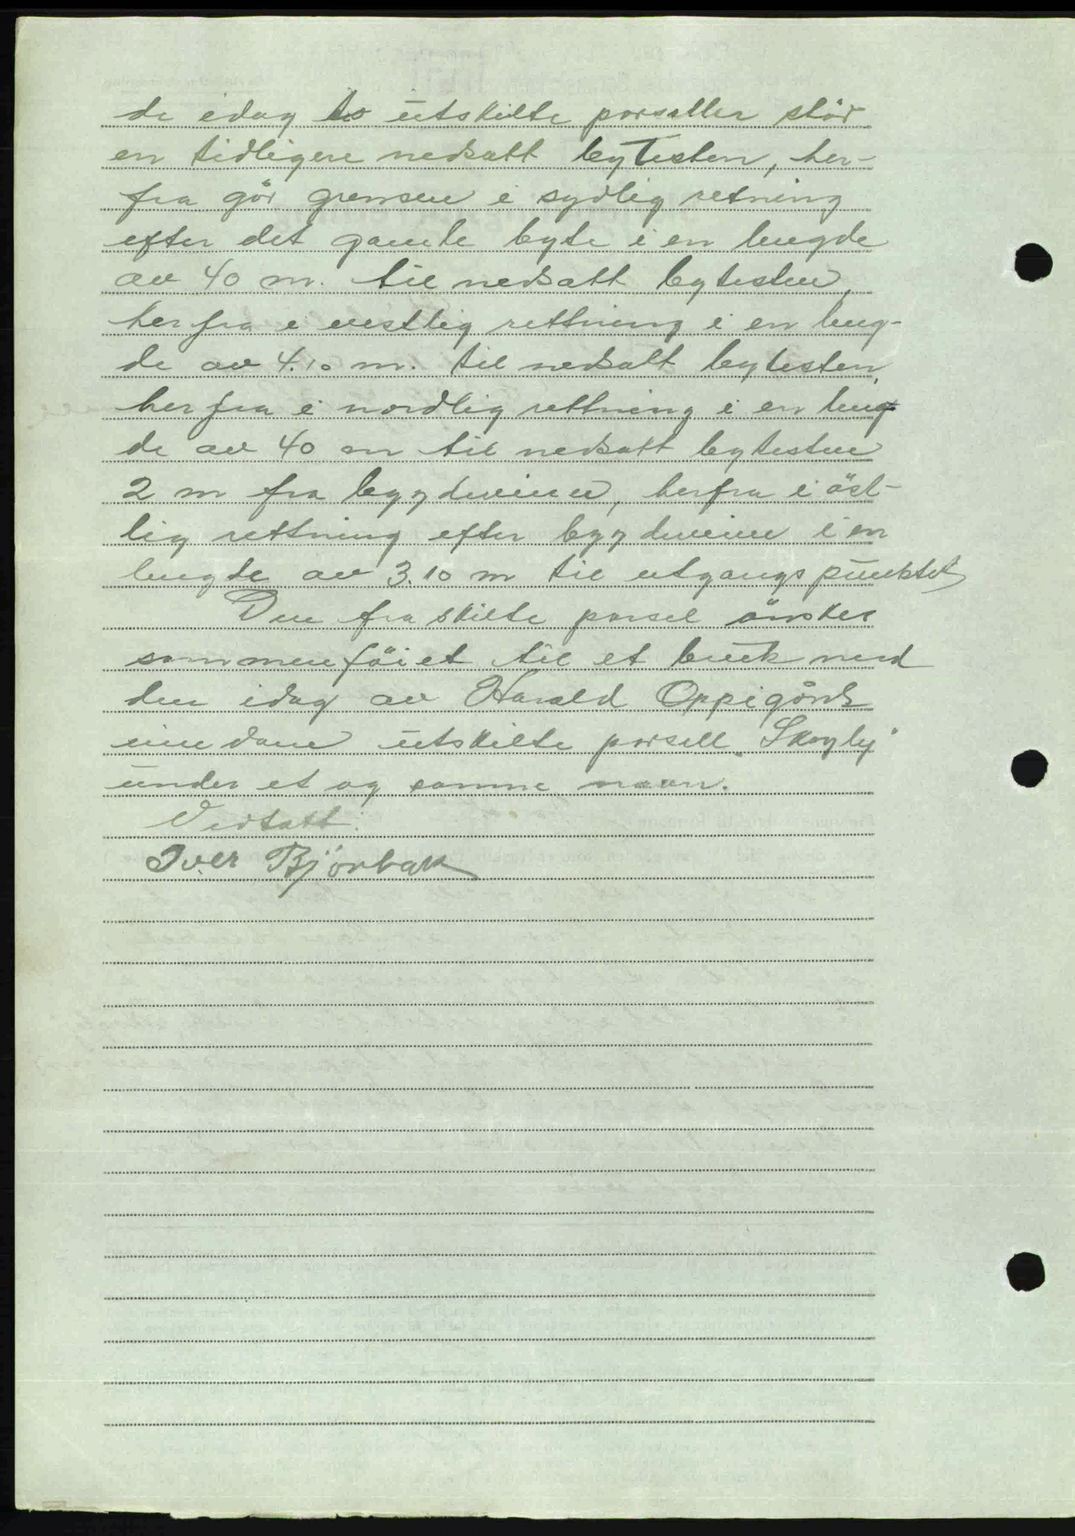 de idag to utskilte porseller står
en tidligere nedsatt bytesten, her-
fra går grensen i sydlig retning
efter det gamle byte i en lengde
av 40 m. til nedsatt bytesten,
herfra i vestlig rettning i en leng-
de av 4.10 m. til nedsatt bytesten,
herfra i nordlig rettning i en leng-
de av 40 m til nedsatt bytesten
2 m fra bygdeveien, herfra i øst-
lig rettning efter bygdeveien i en
lengde av 3.10 m til utgangspunktet
Den fraskilte parsel ønskes
sammenføiet til et bruk med
den idag av Harald Oppigårds
eiendom utskilte porsell "Skogly"
under et og samme navn.
Vedtatt.
Iver Bjørbak